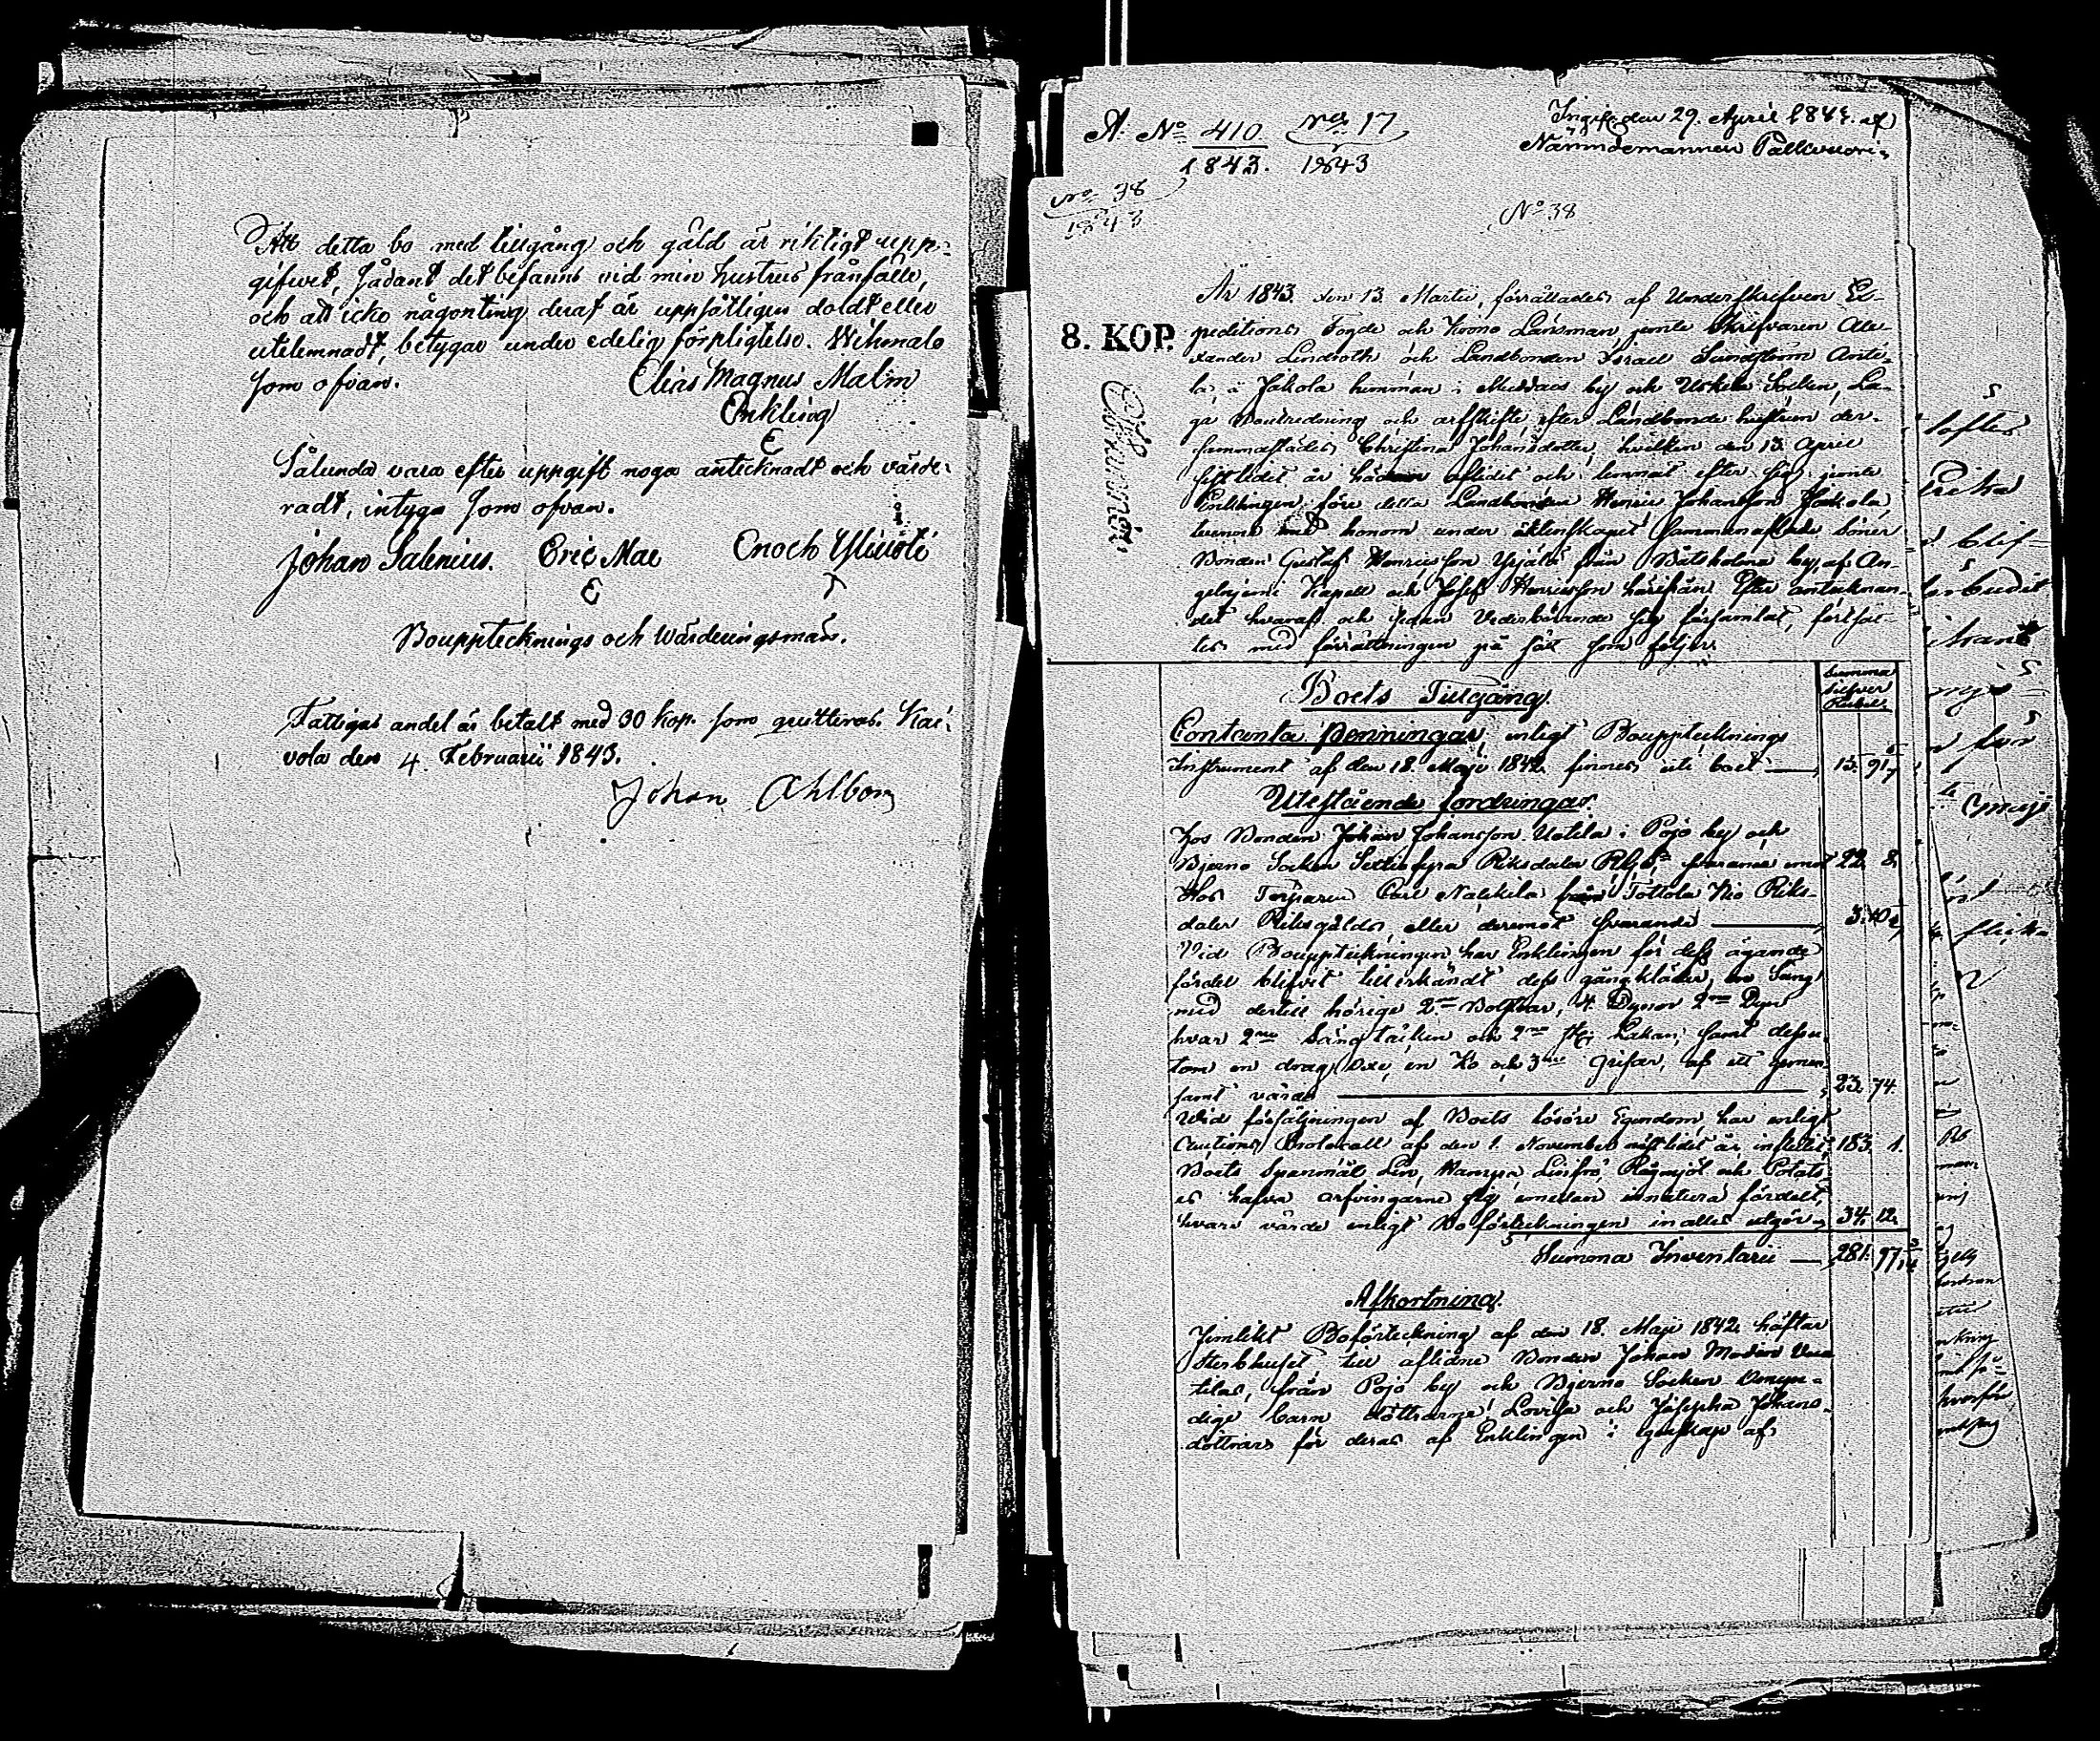 Att detta bo med tillgång och gäld är riktigt upp-
gifwet, sådant det befanns vid min hustrus frånfälle,
och att icke någonting deraf är uppsåtligen doldt eller
utelemnadt, betygar under edelig förpligtelse. Wihmalo
som ofvan. Elias Magnus Malm
Enkling
Sålunda vara efter uppgift noga antecknadt och värde-
radt, intyga som ofvan.
Johan Salenius. Eric Mac Enoch
Bouppteknings och Wärderingsmän.
Fattigas andel är betalt med 30 kop. som quitteras. Kai-
vola den 4 Februarii 1843.
Johan Ahlbom
A. No 410 No 17
1843. 1843
Ingif. den 29. April 1843. af
Nämndemannen
No 38
1843
No 38
År 1843 den 13 Martii, förrättades af Underskrefven Ex-
8. KOP. peditions Fogde och Krono Länsman jemte Skrifvaren Alex-
ander Lindroth och Landbonden Israel Sundström Anti-
la, å Jakola hemman i by och Uskela Socken, La-
ga Boutredning och arfskifte efter Landbonde hustrun der-
sammastädes Christina Johansdotter, hvilken den 13 April
sistledet år aflidit och lemnat efter sig jemte
Enklingen före detta Landbonden Henric Johansson Jakola,
tvenne med honom under äktenskapet sammanaflade söner
Bonden Gustaf Henricsson Yrjälä från Båtsholma by af An-
gelniemi Kapell och Josef Henricsson härifrån. Efter antecknan-
det hvaraf och sedan Vederbörande sig församlat, fortsat-
tes med förrättningen på sätt som följer.
Summa
Silfver
Rubel
Boets Tillgång.
Contanta Penningar, enligt Bouppteknings
Instrument af den 18. Maji 1842 finnes uti boet 15. 91
Utestående fordringar.
hos Bonden Johan Johansson Uotila i Pojo by och
Bjerno Socken Riksdaler svarande emot 22. 8.
Hos Torparen Carl från Tottola Tio Riks-
daler Riksgälds, eller deremot svarande 3. 40
Vid Boupptekningen har Enklingen för dess ägande
fördel blifvit tillerkändt dess gångkläder, en Säng
med dertill hörige 2ne Bolstrar, 4 Dynor 2ne Dyn
hvar 2ne Sängtäcken och 2ne Lakan, samt dessu-
tom en drag Oxe, en Ko och 3ne Grisar, af ett gemen-
samt värde 23. 74.
Wid försäljningen af Boets lösöre Egendom, har enligt
Auctions Protocoll af den 1. November sistledet år influtit 183. 1.
Boets Spanmål, Lin, Hampa, Linfrö, Rågmjöl och Potatis
es hafva arfvingarne sig emellan innatura fördelt,
hvars värde enligt Boförteckningen inalles utgör 34. 12.
Summa Inventarii 281. 97
Afkortning.
Jemlikt Boförteckning af den 18. Maji 1842 häftar
Sterbhuset till aflidne Bonden Johan
tilas, från Pojo by och Bjerno Socken Omyn-
dige barn döttrarne Lovisa och Josepha Johans-
döttrars för deras af Enklingen i Egenskap af